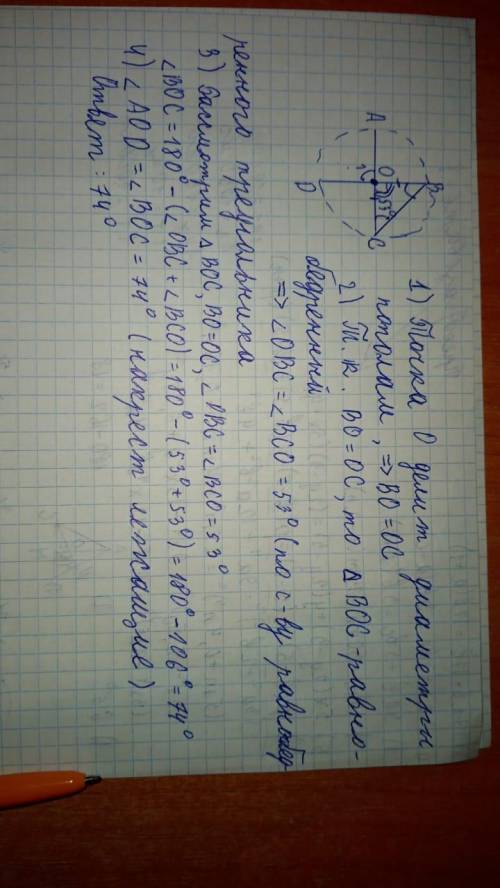 A
B
O
53°
C
D
1) Точка О делит диаметры
пополам, => BO=OC
2) Т.к. BO=OC, то Δ BOC-равно-
бедренный
=> ∠OBC=∠BCO=53° (по с-ву равнобед
ренного треугольника
3) Рассмотрим Δ BOC, BO=OC, ∠OBC=∠BCO=53°
∠BOC=180°-(∠OBC+∠BCO)=180°-(53°+53°)=180°-106°=74°
4) ∠AOD=∠BOC=74° (накрест лежащие)
Ответ: 74°